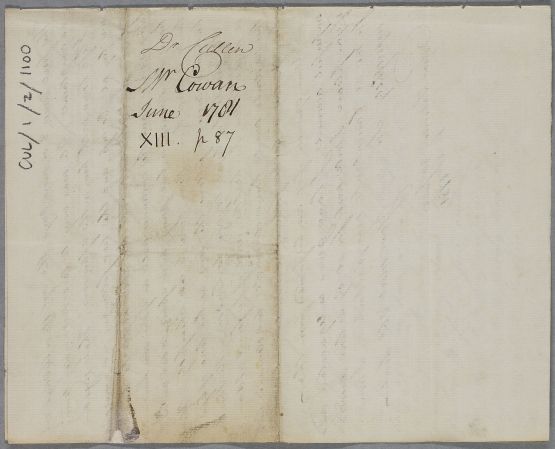 Dr Cullen
Mr Cowan
June 1781
XIII. p 87
CUL/1/2/1100